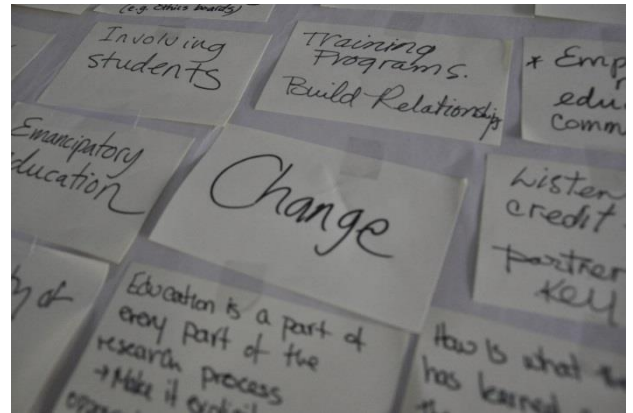 (e.g. ethics boards)
Involving
students
Training
Programs.
Build Relationships
* Emp
edu
comm
Emancipatory
ducation
Change
Listen
credit
partner
Key
y of
Education is a part of
every part of the
research process
→ Make it explicit
How is what
has learned